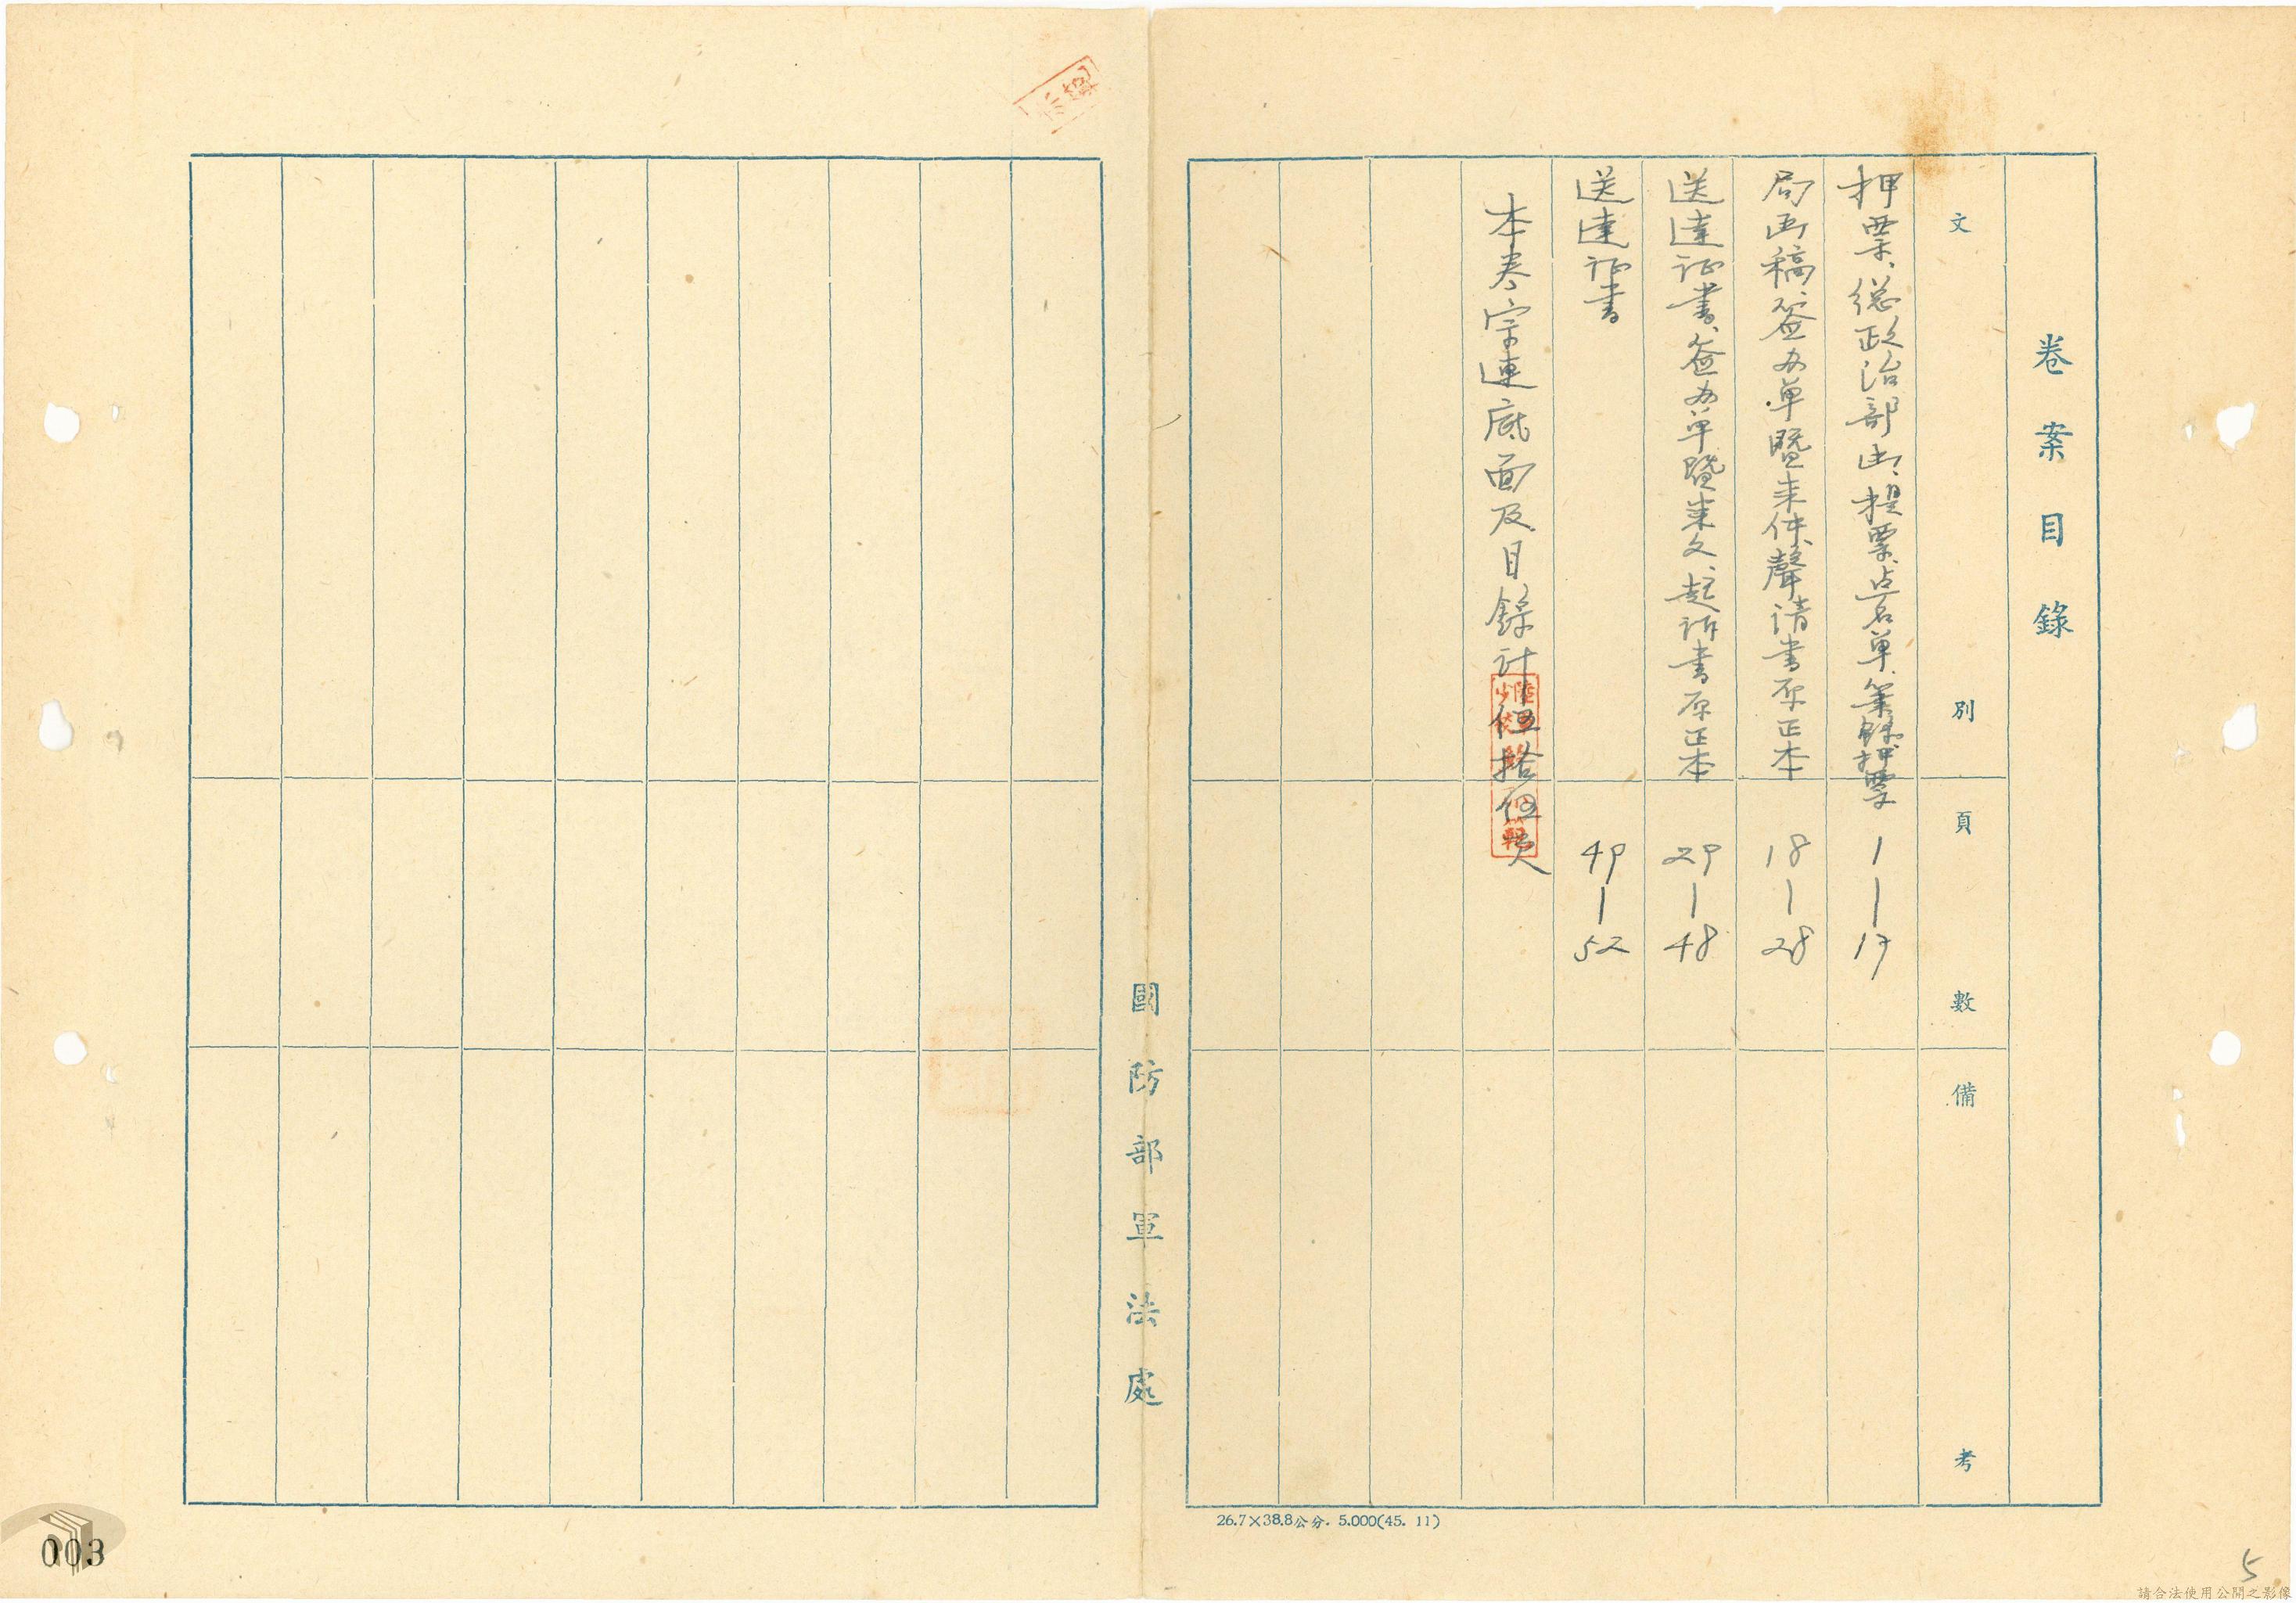 卷案目錄
文別
頁數
備考
押票、総政治部函、提票、点名单、筆錄、押票
1—17
局函稿、签办单暨来件、聲请書原正本
18—28
送達証書、签办单暨来文、起訴書原正本
29—48
送達証書
49—52
本卷宗連底面及目錄計伍拾伍頁
26.7×38.8公分. 5.000(45. 11)
國防部軍法處
003
5
請合法使用公開之影像